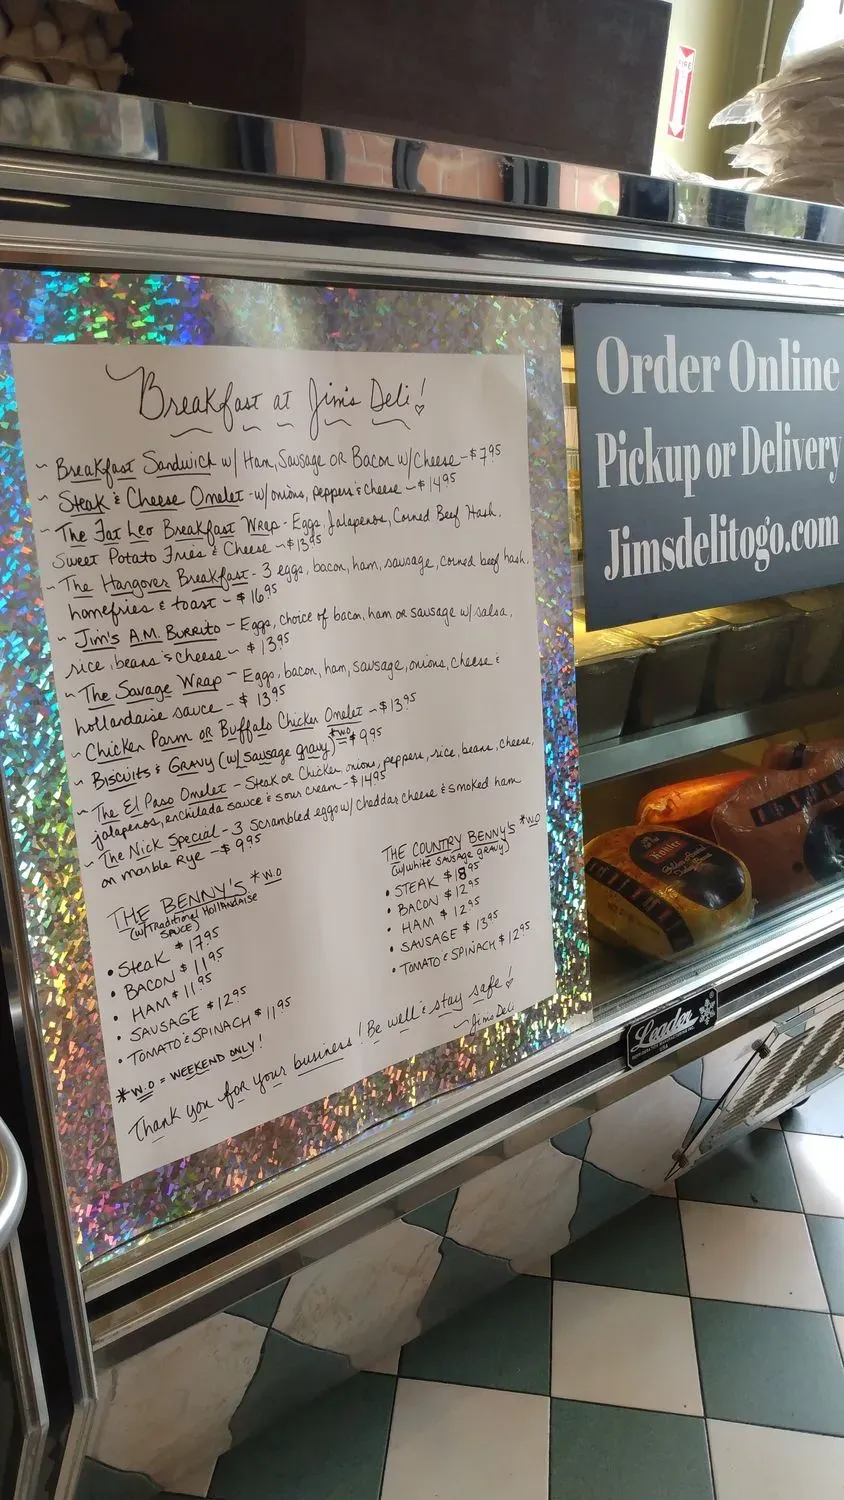 Breakfast at Jim's Deli!
~ Breakfast Sandwich w/ Ham, Sausage OR Bacon w/Cheese - $7.95
~ Steak & Cheese Omelet - w/onions, peppers & cheese ~ $14.95
~ The Fat Leo Breakfast Wrap - Eggs, Jalapenos, Corned Beef Hash,
Sweet Potato Fries & Cheese ~ $13.95
~ The Hangover Breakfast - 3 eggs, bacon, ham, sausage, corned beef hash,
homefries & toast - $16.95
~ Jim's A.M. Burrito - Eggs, choice of bacon, ham or sausage w/ salsa,
rice, beans & cheese ~ $13.95
~ The Savage Wrap - Eggs, bacon, ham, sausage, onions, cheese &
hollandaise sauce - $13.95
~ Chicken Parm OR Buffalo Chicken Omelet ~ $13.95
~ Biscuits & Gravy (w/ sausage gravy) *W.O $9.95
~ The El Paso Omelet - Steak or Chicken, onions, peppers, rice, beans, cheese,
jalapenos, enchilada sauce & sour cream - $14.95
~ The Nick Special - 3 Scrambled eggs w/ Cheddar cheese & smoked ham
on marble Rye - $9.95
THE BENNY'S *W.O
(w/TRADITIONAL HOLLANDAISE
SAUCE)
• STEAK $17.95
• BACON $11.95
• HAM $11.95
• SAUSAGE $12.95
• TOMATO & SPINACH $11.95
*W.O = WEEKEND ONLY!
THE COUNTRY BENNY'S *W.O
(w/WHITE SAUSAGE GRAVY)
• STEAK $18.95
• BACON $12.95
• HAM $12.95
• SAUSAGE $13.95
• TOMATO & SPINACH $12.95
Thank you for your business! Be well & stay safe!
~ Jim's Deli
Order Online
Pickup or Delivery
Jimsdelitogo.com
FIRE
Leader